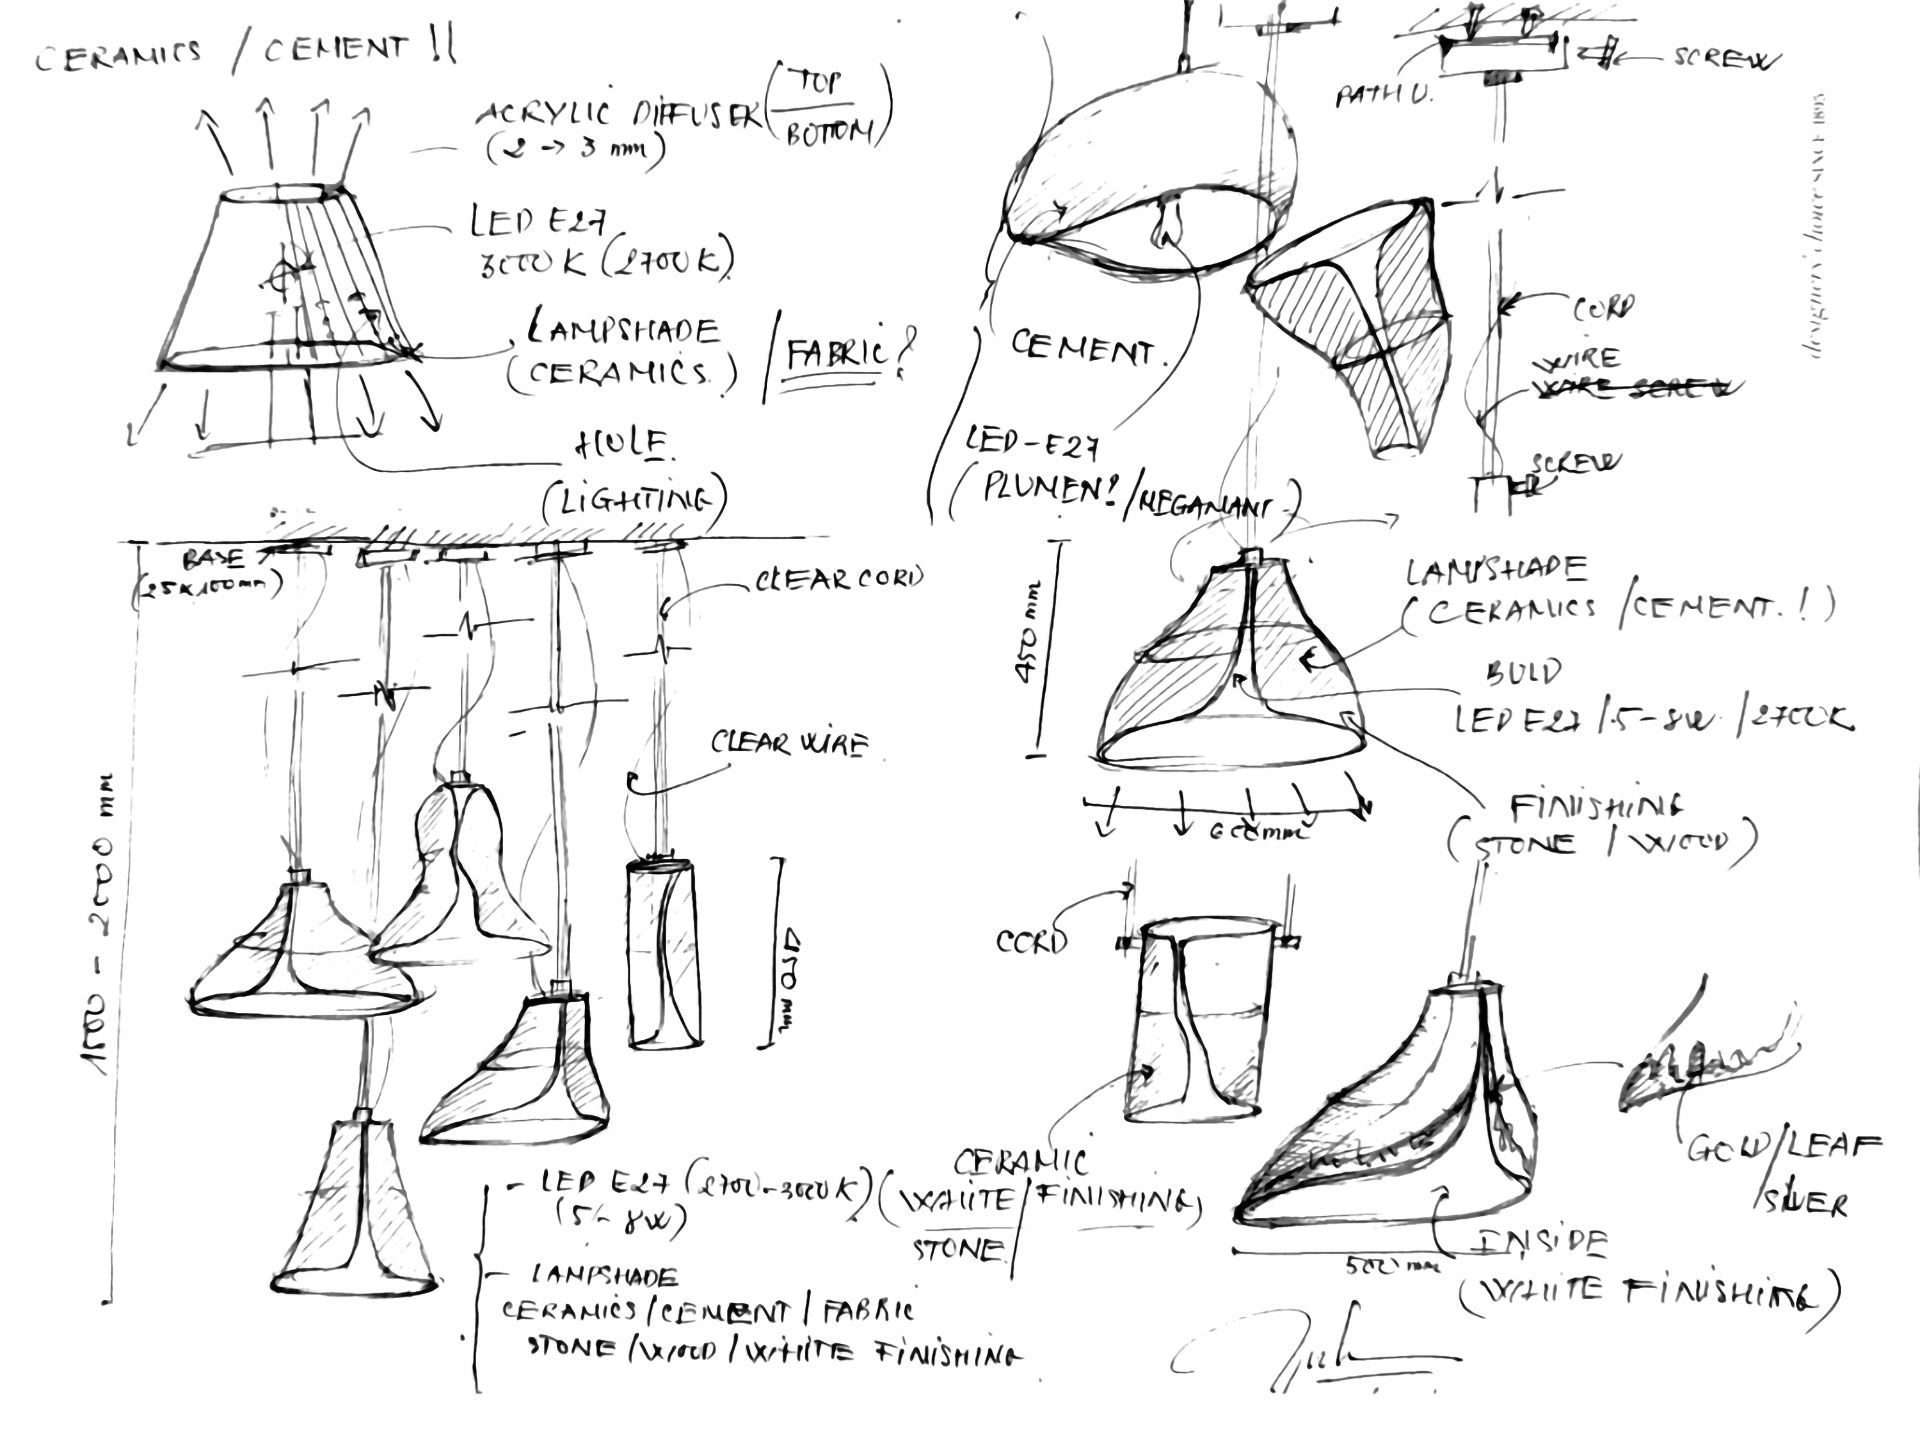 CERAMICS / CEMENT !!
ACRYLIC DIFFUSER (TOP / BOTTOM)
(2 → 3 mm)
LED E27
3000 K (2700 K)
LAMPSHADE
(CERAMICS.) / FABRIC?
HOLE.
(LIGHTING)
BASE
(25x100mm)
CLEAR CORD
CLEAR WIRE
1500 - 2000 mm
450 mm
- LED E27 (2700-3000K)
(5-8W)
- LAMPSHADE
CERAMICS / CEMENT / FABRIC
STONE / WOOD / WHITE FINISHING
SCREW
PATH U.
CEMENT.
LED-E27
(PLUMEN? / MEGAMANT)
CORD
WIRE
WARE SCREW
SCREW
designer's choice SINCE 1895
450 mm
LAMPSHADE
(CERAMICS / CEMENT.!)
BULD
LED E27 / 5-8W / 2700K
600mm
FINISHING
(STONE / WOOD)
CORD
CERAMIC
(WHITE / FINISHING)
STONE
GOLD / LEAF
SILVER
500 mm
INSIDE
(WHITE FINISHING)